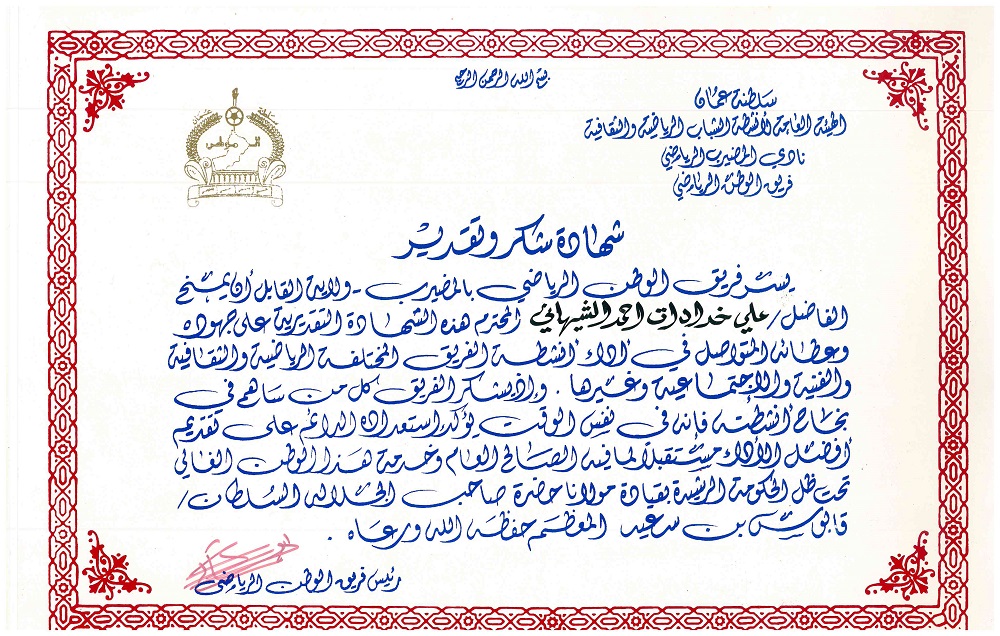 بسم الله الرحمن الرحيم
سلطنة عمان
الهيئة العامة لأنشطة الشباب الرياضية والثقافية
نادي المضيرب الرياضي
فريق الوطن الرياضي
شهادة شكر وتقدير
يسر فريق الوطن الرياضي بالمضيرب - ولاية القابل أن يمنح
الفاضل / علي خدادات احمد الشيهاني المحترم هذه الشهادة التقديرية على جهوده
وعطائه المتواصل في أداء أنشطة الفريق المختلفة الرياضية والثقافية
والفنية والإجتماعية وغيرها . وإذ يشكر الفريق كل من ساهم في
نجاح أنشطته فإنه في نفس الوقت يؤكد إستعداده الدائم على تقديم
أفضل الأداء مستقبلا لما فيه الصالح العام وخدمة هذا الوطن الغالي
تحت ظل الحكومة الرشيدة بقيادة مولانا حضرة صاحب الجلالة السلطان /
قابوس بن سعيد المعظم حفظه الله ورعاه .
رئيس فريق الوطن الرياضي